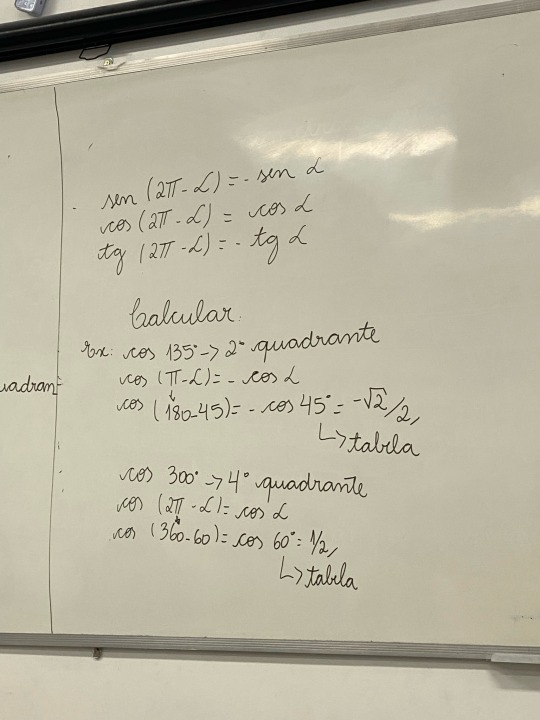 sen (2π - α) = - sen α
cos (2π - α) = cos α
tg (2π - α) = - tg α
Calcular:
Ex: cos 135° → 2° quadrante
cos (π - α) = - cos α
cos (180 - 45) = - cos 45° = -√2/2,
↳ tabela
cos 300° → 4° quadrante
cos (2π - α) = cos α
cos (360 - 60) = cos 60° = 1/2,
↳ tabela